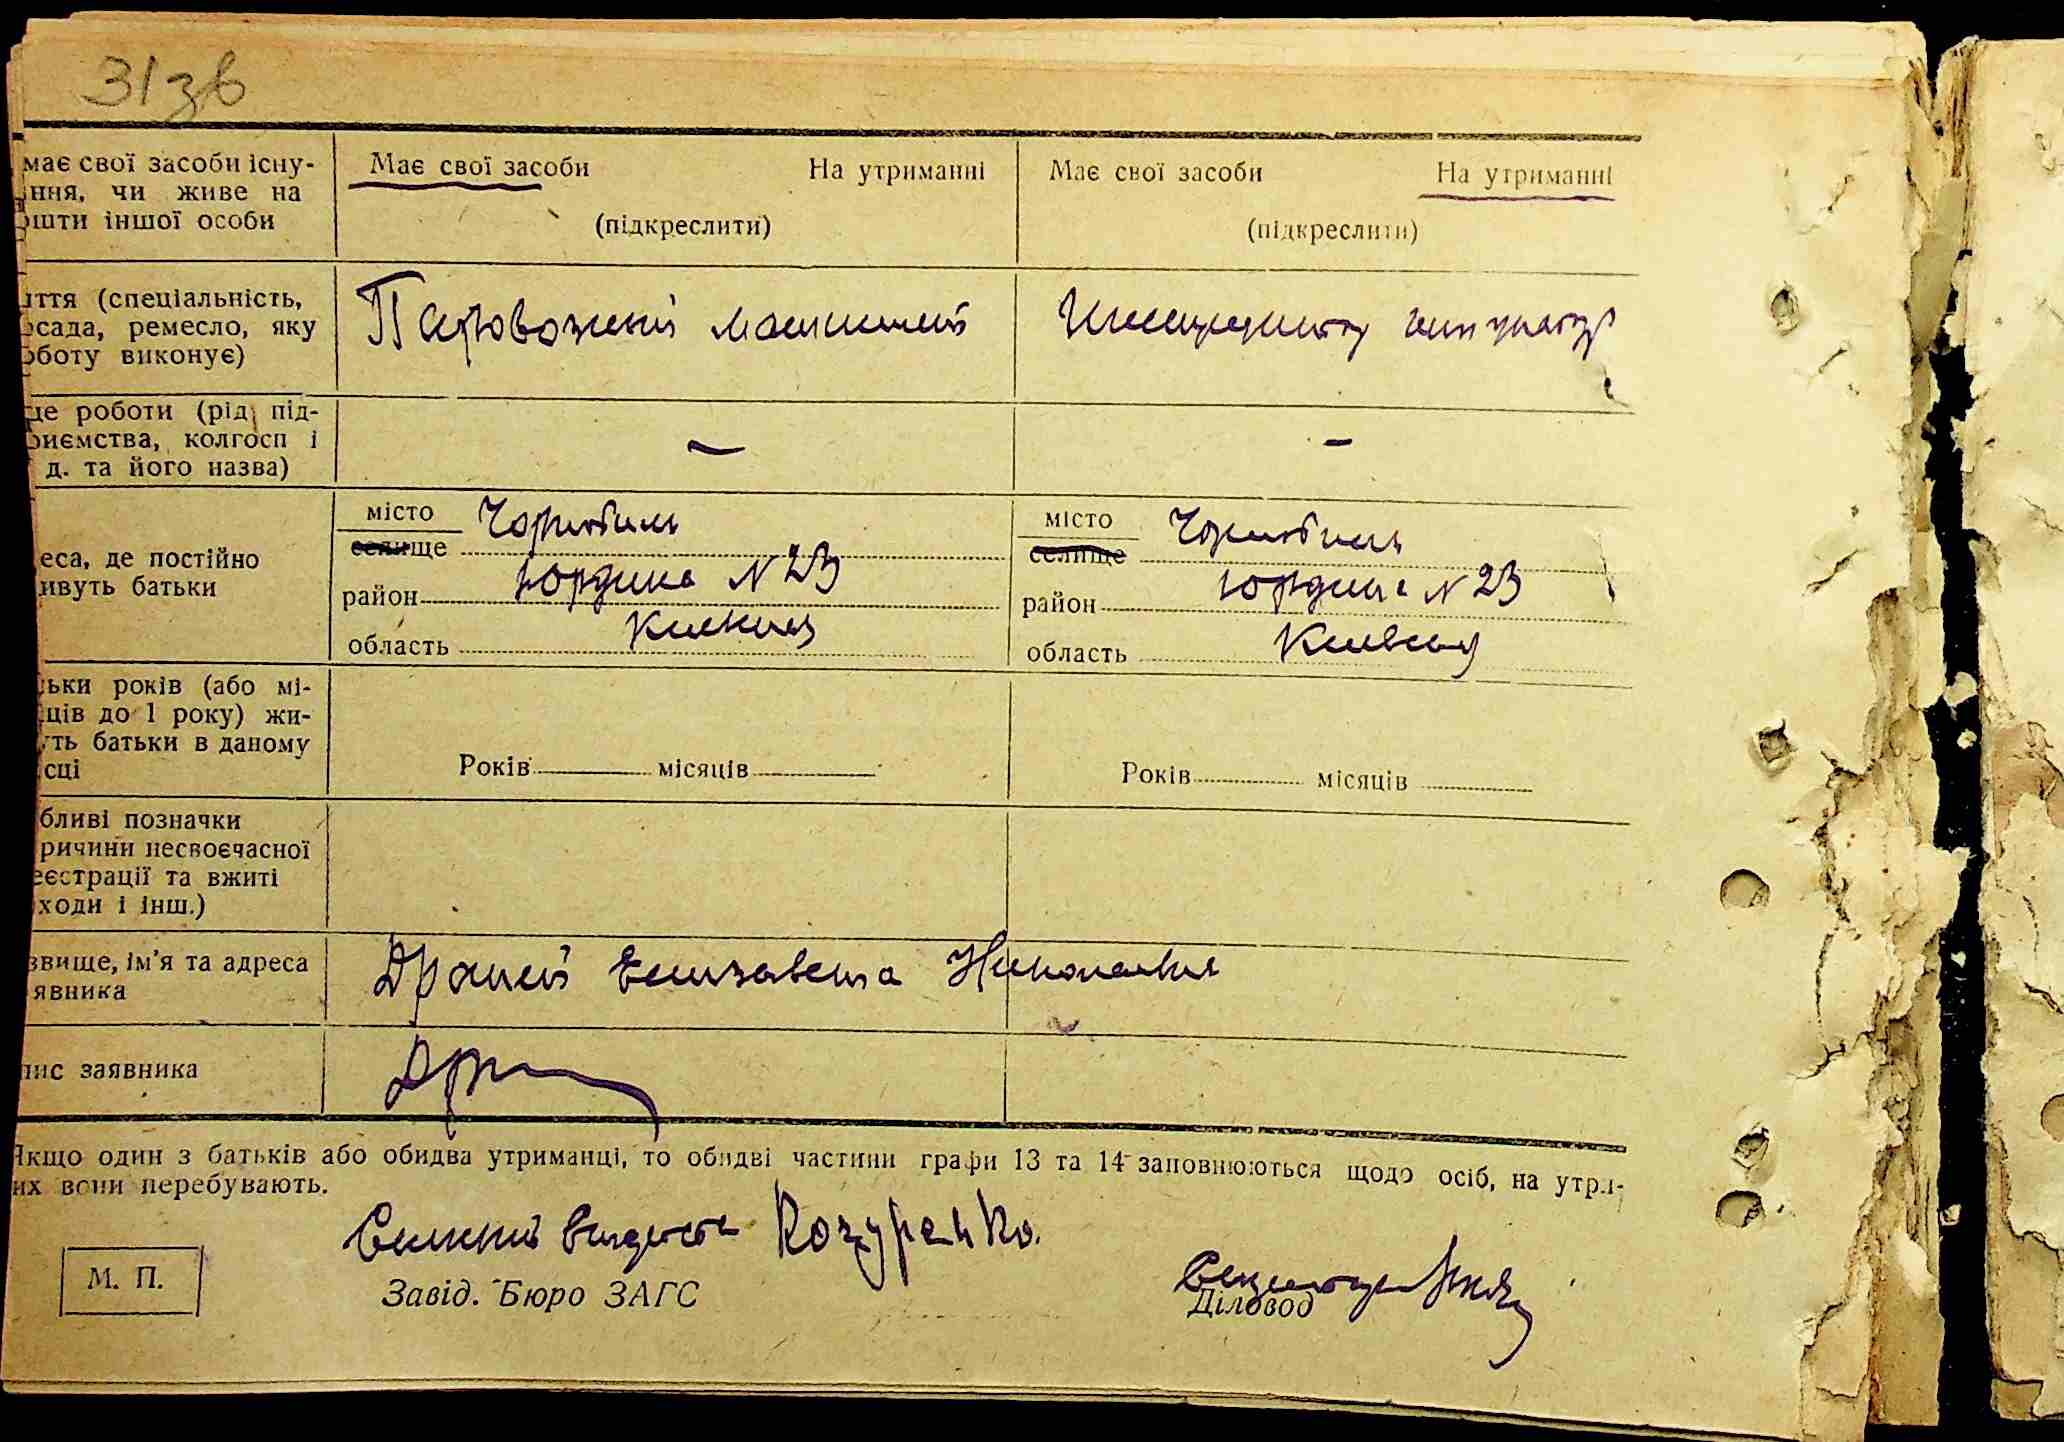 31зв
має свої засоби існу-
ння, чи живе на
ошти іншої особи
Має свої засоби На утриманні
(підкреслити)
Має свої засоби На утриманні
(підкреслити)
ття (спеціальність,
осада, ремесло, яку
оботу виконує)
Паровозний машиніст
це роботи (рід під-
риємства, колгосп і
д. та його назва)
–
–
еса, де постійно
ивуть батьки
місто Чорнобиль
селище
район Юрдика N 23
область Київська
місто Чорнобиль
селище
район Юрдика N 23
область Київська
ьки років (або мі-
ців до 1 року) жи-
ть батьки в даному
сці
Років місяців
Років місяців
бливі позначки
ричини несвоєчасної
еєстрації та вжиті
ходи і інш.)
звище, ім'я та адреса
явника
Елизавета Николаевна
пис заявника
Якщо один з батьків або обидва утриманці, то обидві частини графи 13 та 14 заповнюються щодо осіб, на утри-
их вони перебувають.
Козуренко.
М. П.
Завід. Бюро ЗАГС
Секретар
Діловод